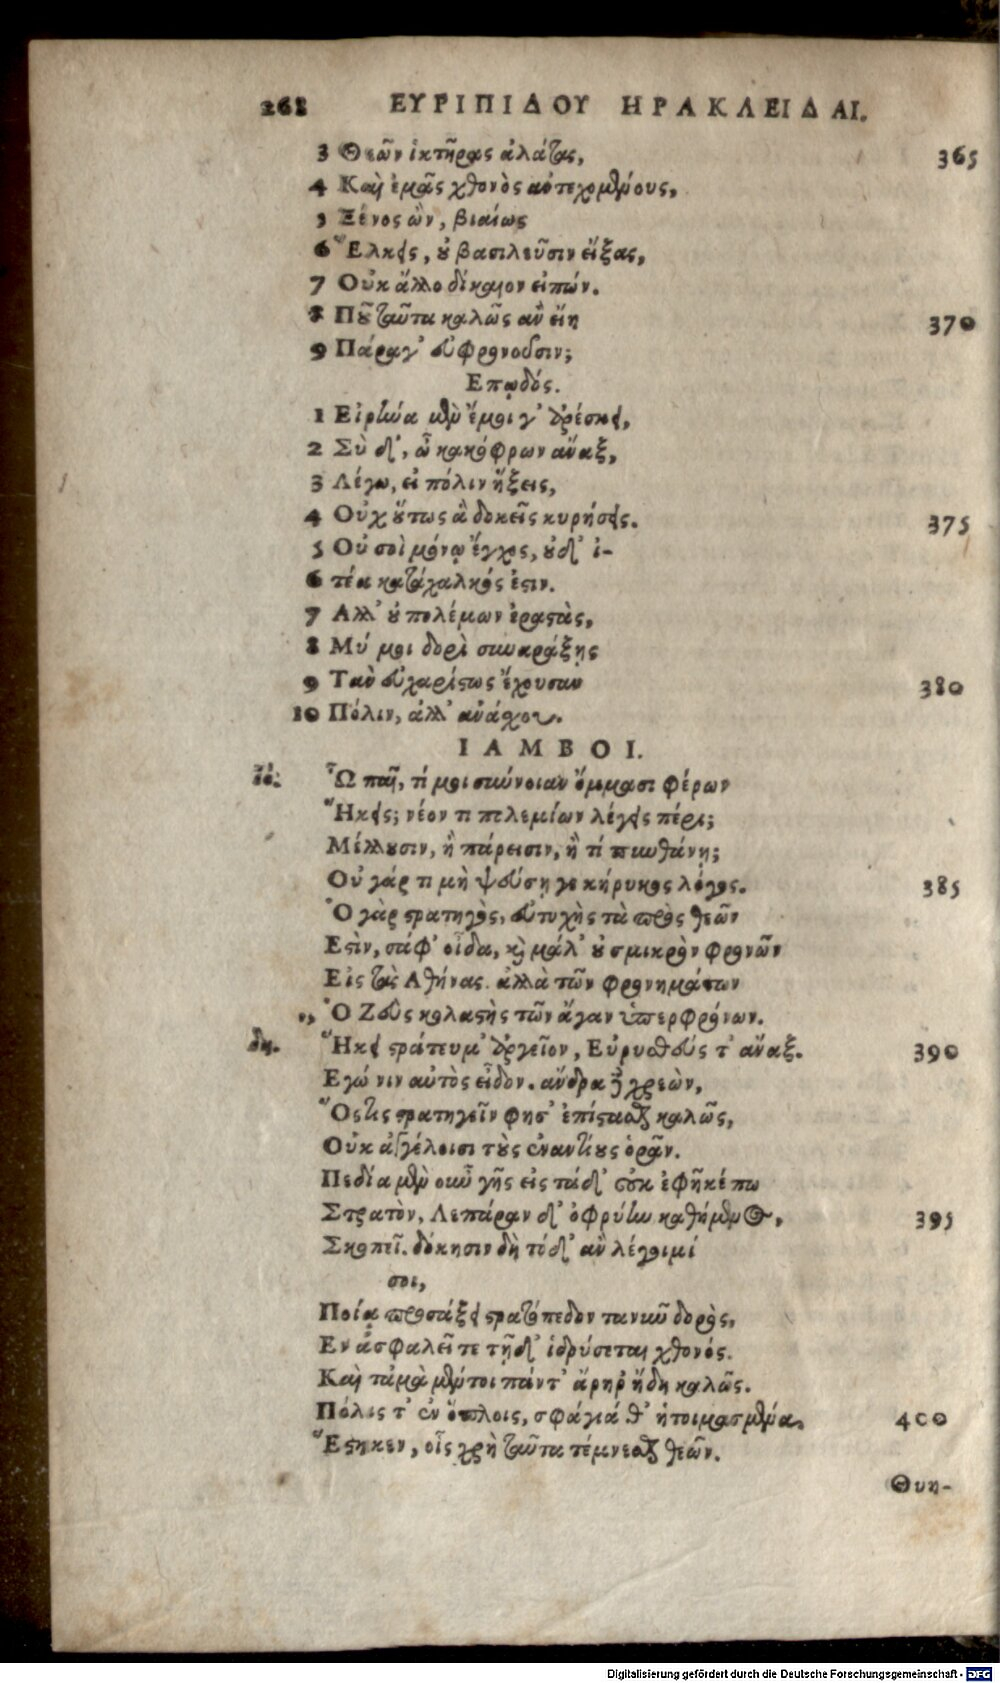 268 ΕΥΡΙΠΙΔΟΥ ΗΡΑΚΛΕΙΔΑΙ.
3 Θεῶν ἱκτῆρας ἀλάτας, 365
4 Καὶ ἐμᾶς χθονὸς ἀντεχομένους,
5 Ξένος ὢν, βιαίως
6 Ἕλκεις, οὐ βασιλεῦσιν εἴξας,
7 Οὐκ ἄλλο δίκαιον εἰπών.
8 Ποῦ ταῦτα καλῶς ἂν εἴη 370
9 Πάραγ' εὐφρονοῦσιν;
Επῳδός.
1 Εἰρήνα μὲν ἔμοι γ' ἀρέσκει,
2 Σὺ δ', ὦ κακόφρων ἄναξ,
3 Λέγω, εἰ πόλιν ἥξεις,
4 Οὐχ οὕτως ἃ δοκεῖς κυρήσεις. 375
5 Οὐ σοὶ μόνῳ ἔγχος, οὐδ' ἰ-
6 τέα κατάχαλκός ἐστιν.
7 Αλλ' οὐ πολέμων ἐραστὰς,
8 Μύ μοι δορὶ συνταράξῃς
9 Τὰν εὐχαρίστως ἔχουσαν 380
10 Πόλιν, ἀλλ' ἀνάσχου.
ΙΑΜΒΟΙ.
Ἰό. Ὦ παῖ, τί μοι σύννοιαν ὄμμασι φέρων
Ἥκεις; νέον τι πολεμίων λέγεις πέρι;
Μέλλουσιν, ἢ πάρεισιν, ἢ τί πυνθάνῃ;
Οὐ γάρ τι μὴ ψεύσῃ γε κήρυκος λόγος. 385
Ὁ γὰρ στρατηγὸς, εὐτυχὴς τὰ πρὸς θεῶν
Εστὶν, σάφ' οἶδα, καὶ μάλ' οὐ σμικρὸν φρονῶν
Εἰς τὰς Αθήνας. ἀλλὰ τῶν φρονημάτων
,, Ὁ Ζεὺς κολαστὴς τῶν ἄγαν ὑπερφρόνων.
δη. Ἥκει στράτευμ' ἀργεῖον, Εὐρυσθεύς τ' ἄναξ. 390
Εγώ νιν αὐτὸς εἶδον. ἄνδρα γὰρ χρεὼν,
Ὅστις στρατηγεῖν φησ' ἐπίστασθαι καλῶς,
Οὐκ ἀγγέλοισι τοὺς ἐναντίους ὁρᾶν.
Πεδία μὲν οὖν γῆς εἰς τάδ' οὐκ ἐφῆκέ πω
Στρατὸν, Λεπάραν δ' ὀφρύην καθήμενος, 395
Σκοπεῖ. δόκησιν δὴ τόδ' ἂν λέγοιμί
σοι,
Ποίᾳ προσάξει στρατόπεδον τανῦν δορὸς,
Εν ἀσφαλεῖ τε τῆσδ' ἱδρύσεται χθονός.
Καὶ τἀμὰ μέντοι πάντ' ἄρηρεν ἤδη καλῶς.
Πόλις τ' ἐν ὅπλοις, σφάγιά θ' ἡτοιμασμένα, 400
Ἕστηκεν, οἷς χρὴ ταῦτα τέμνεσθαι θεῶν.
Θυη-
Digitalisierung gefördert durch die Deutsche Forschungsgemeinschaft - DFG